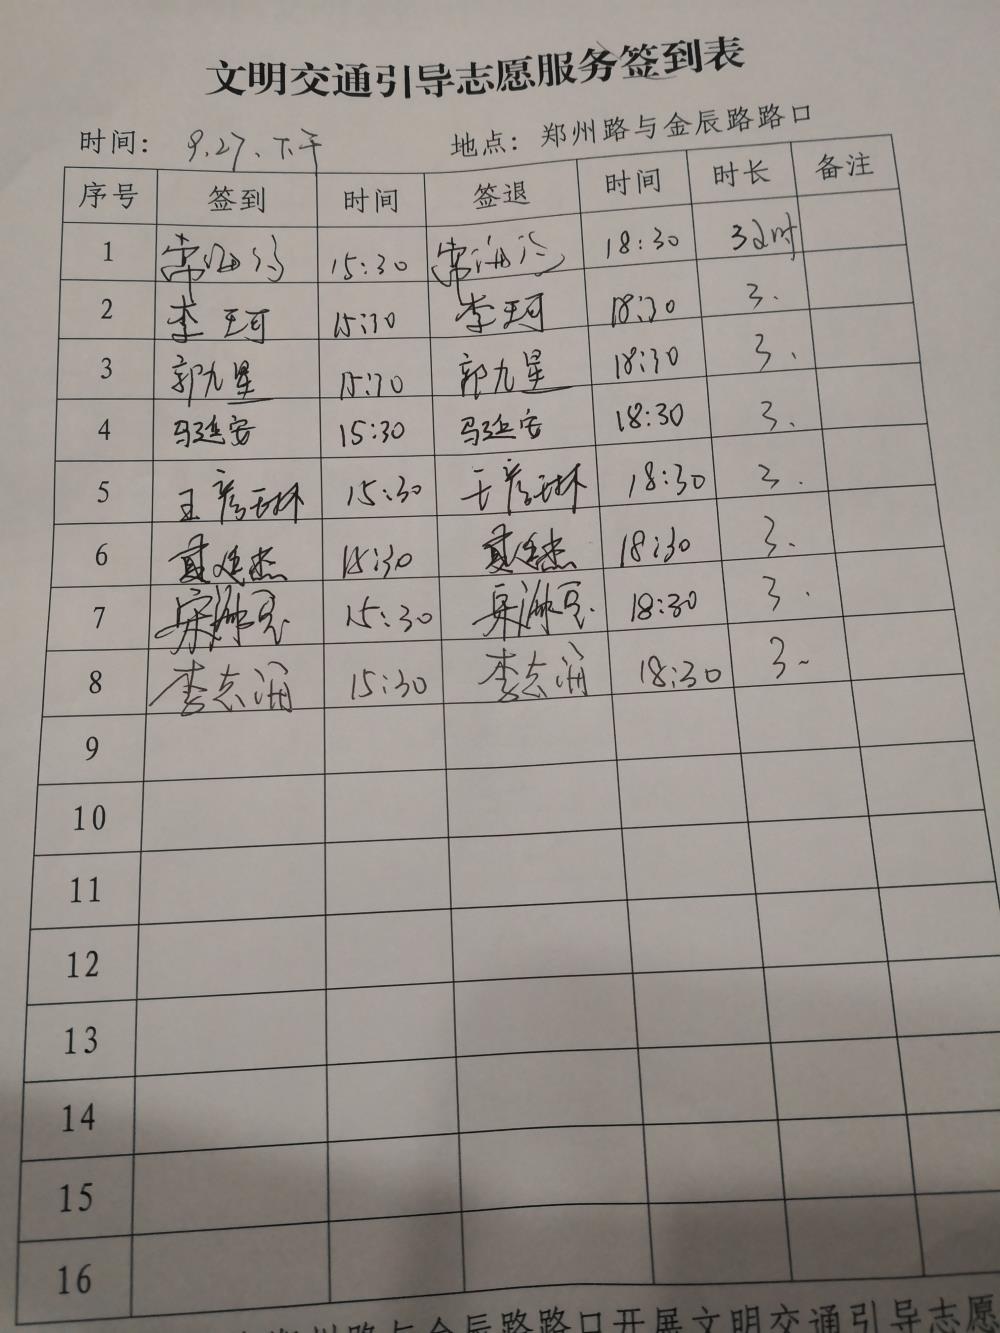 文明交通引导志愿服务签到表
时间： 9.27、下午 地点：郑州路与金辰路路口
序号 签到 时间 签退 时间 时长 备注
1 常 15:30 常 18:30 3小时
2 李珂 15:30 李珂 18:30 3.
3 郭九星 15:30 郭九星 18:30 3、
4 马延安 15:30 马延安 18:30 3、
5 王彦琳 15:30 王彦琳 18:30 3.
6 夏延杰 15:30 夏延杰 18:30 3.
7 宋 15:30 宋 18:30 3.
8 李志润 15:30 李志润 18:30 3~
9
10
11
12
13
14
15
16
郑州路与金辰路路口开展文明交通引导志愿